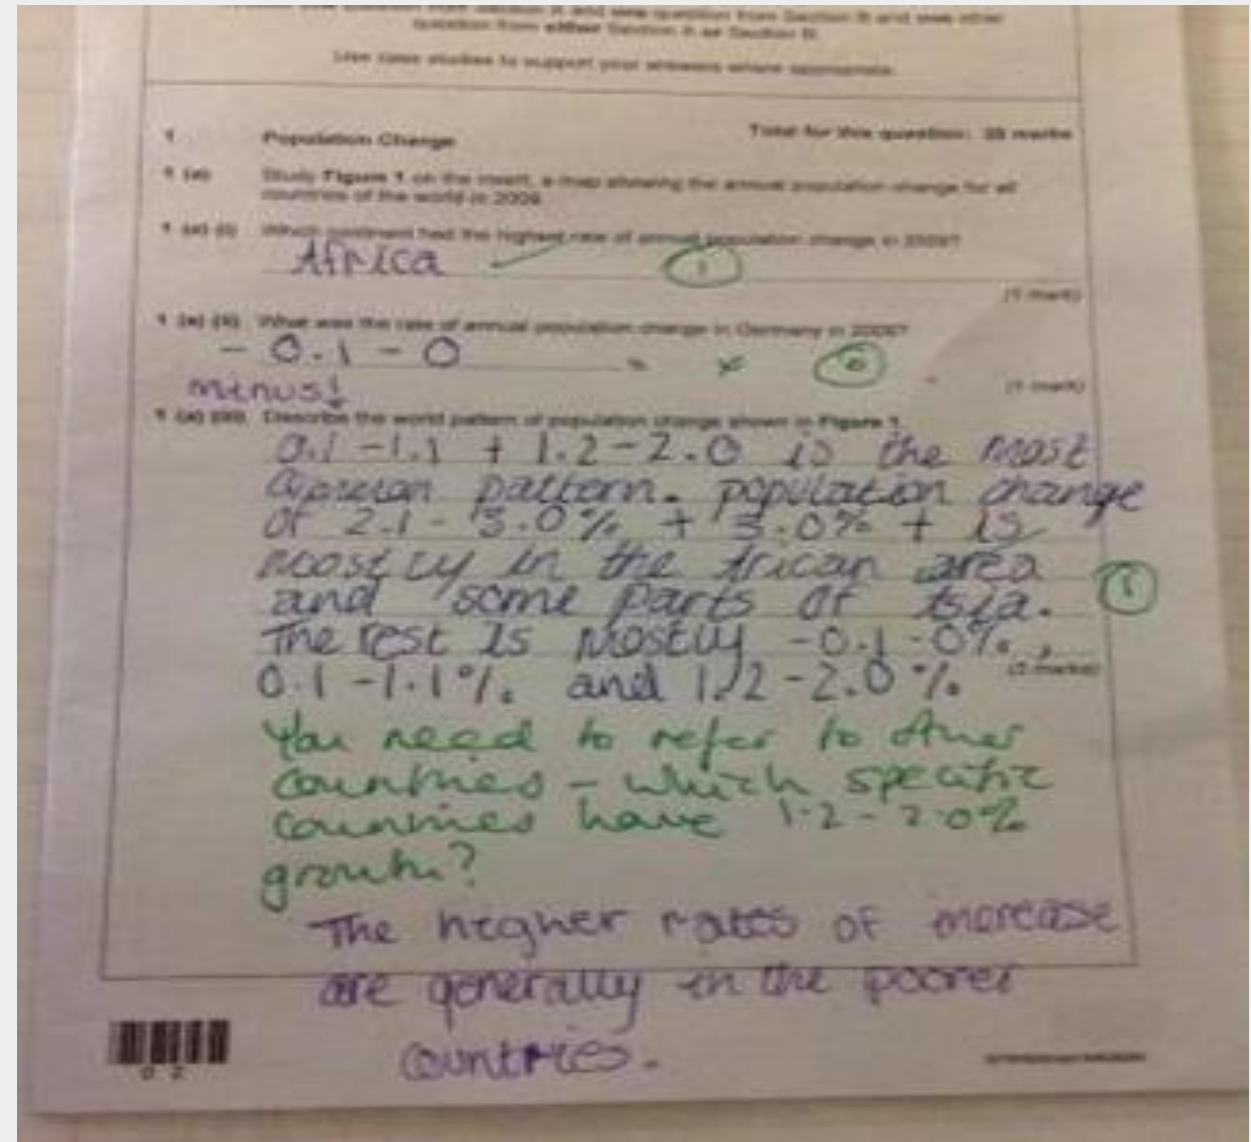 question from either Section A or Section B.
Use case studies to support your answers where appropriate.
1 Population Change Total for this question: 25 marks
1 (a) Study Figure 1 on the insert, a map showing the annual population change for all
countries of the world in 2009.
1 (a) (i) Which continent had the highest rate of annual population change in 2009?
Africa ✓ 1
(1 mark)
1 (a) (ii) What was the rate of annual population change in Germany in 2009?
- 0.1 - 0 % × 0
minus! (1 mark)
1 (a) (iii) Describe the world pattern of population change shown in Figure 1.
0.1 - 1.1 + 1.2 - 2.0 is the most
pattern. population change
of 2.1 - 3.0% + 3.0% + is
mostly in the frican area
and some parts of Asia. 1
The rest is mostly -0.1 - 0%,
(2 marks)
0.1 - 1.1%. and 1.2 - 2.0%.
You need to refer to other
countries - which specific
countries have 1.2 - 2.0%
growth?
The higher rates of increase
are generally in the poorer
countries.
0 2